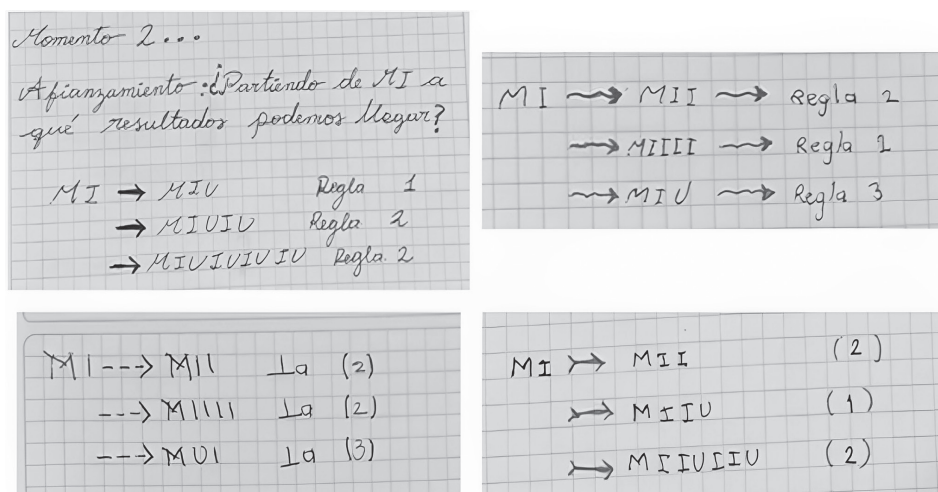 Momento 2...
Afianzamiento: ¿Partiendo de MI a
qué resultados podemos llegar?
MI → MIU Regla 1
→ MIUIU Regla 2
→ MIUIUIUIU Regla. 2
MI ⟿ MII ⟿ Regla 2
⟿ MIIII ⟿ Regla 2
⟿ MIU ⟿ Regla 3
MI ---> MII La (2)
---> MIIII La (2)
---> MUI La (3)
MI ↣ MII (2)
↣ MIIU (1)
↣ MIIUIIU (2)